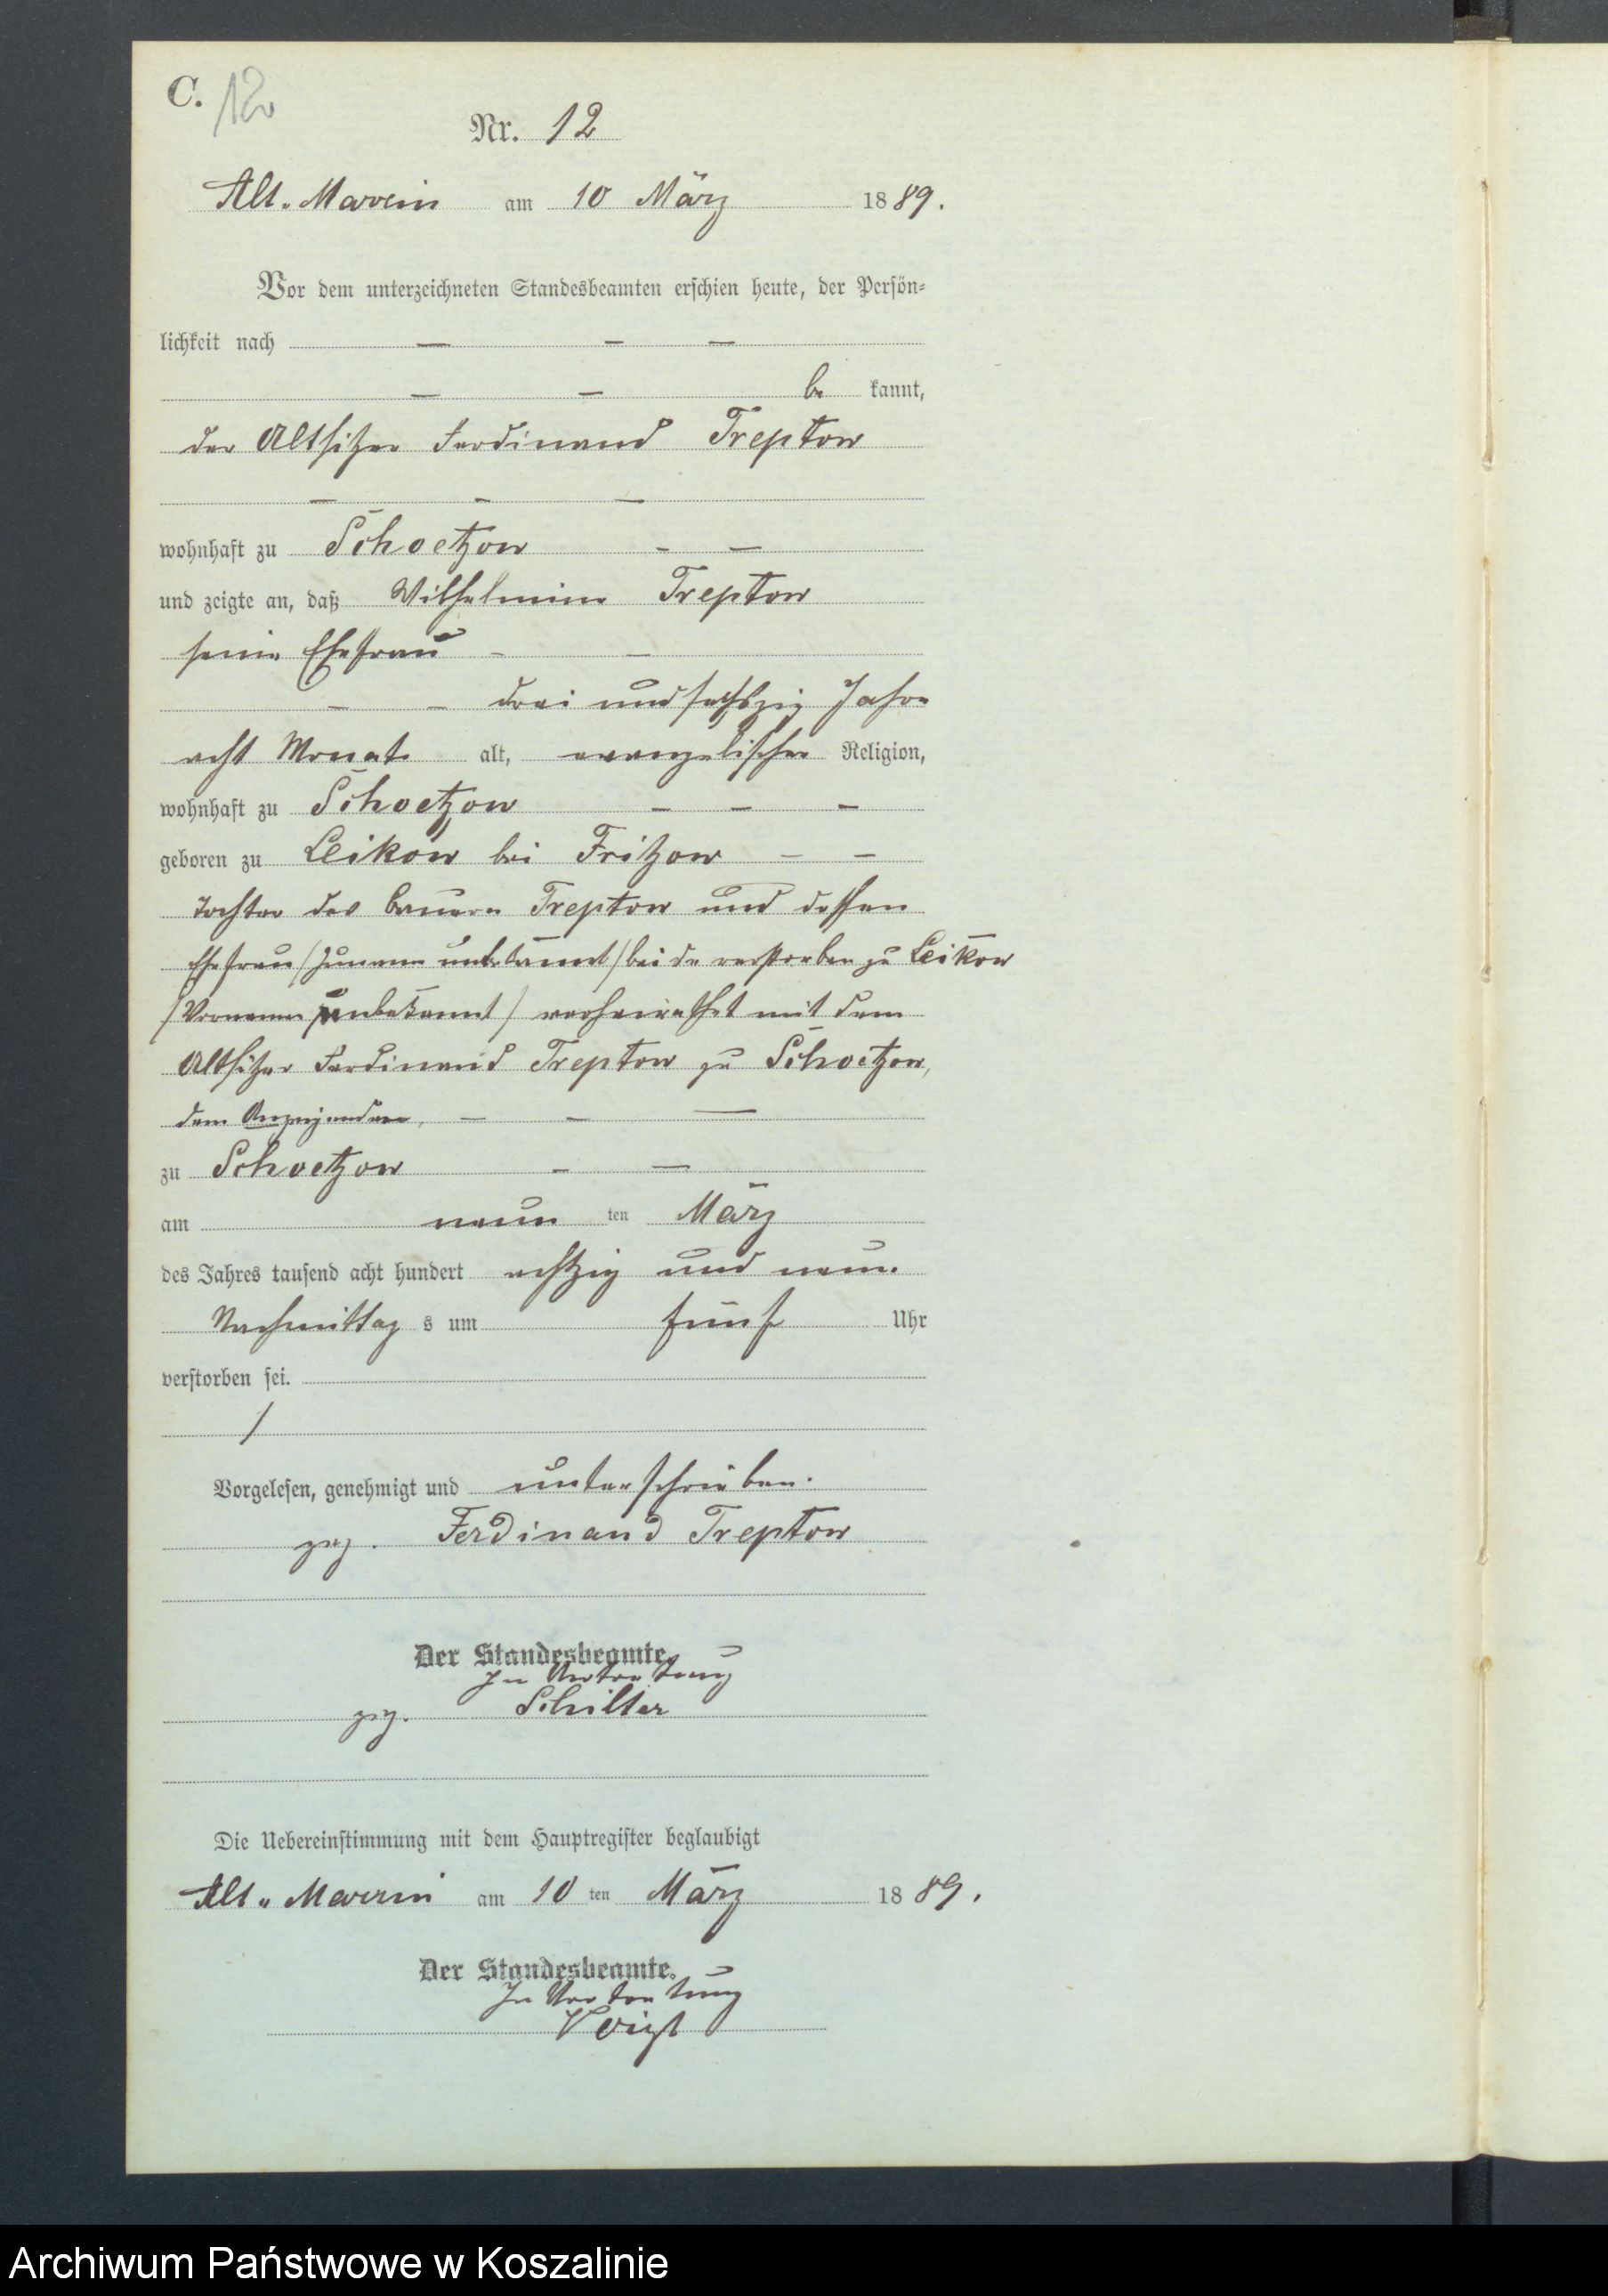 C. 12
Nr. 12
Alt-Marrin am 10 März 1889.
Vor dem unterzeichneten Standesbeamten erschien heute, der Persön-
lichkeit nach — — —
— — be kannt,
der Altsitzer Ferdinand Treptow
— — —
wohnhaft zu Schoetzow — —
und zeigte an, daß Wilhelmine Treptow
seine Ehefrau — —
— — drei und sechszig Jahre
acht Monate alt, evangelischer Religion,
wohnhaft zu Schoetzow — — —
geboren zu Leikow bei Fritzow — —
Tochter des Bauern Treptow und dessen
Ehefrau /Zuname unbekannt/ beide verstorben zu Leikow
/Vornamen unbekannt/ verheirathet mit dem
Altsitzer Ferdinand Treptow zu Schoetzow,
dem Anzeigenden, — — —
zu Schoetzow — —
am neun ten März
des Jahres tausend acht hundert achtzig und neun.
Nachmittag s um fünf Uhr
verstorben sei.
/
Vorgelesen, genehmigt und unterschrieben.
gez. Ferdinand Treptow
Der Standesbeamte.
In Vertretung
gez. Schilter
Die Uebereinstimmung mit dem Hauptregister beglaubigt
Alt-Marrin am 10 ten März 1889.
Der Standesbeamte.
In Vertretung
Voigt
Archiwum Państwowe w Koszalinie